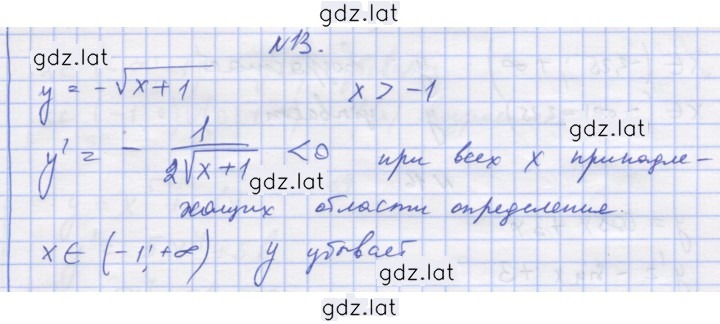 gdz.lat
N13.
gdz.lat
y = -√x+1    x > -1
gdz.lat
y' = - 1/(2√x+1) < 0 при всех x принадле-
gdz.lat
жащих области определение.
x ∈ (-1; +∞) y убывает
gdz.lat
gdz.lat